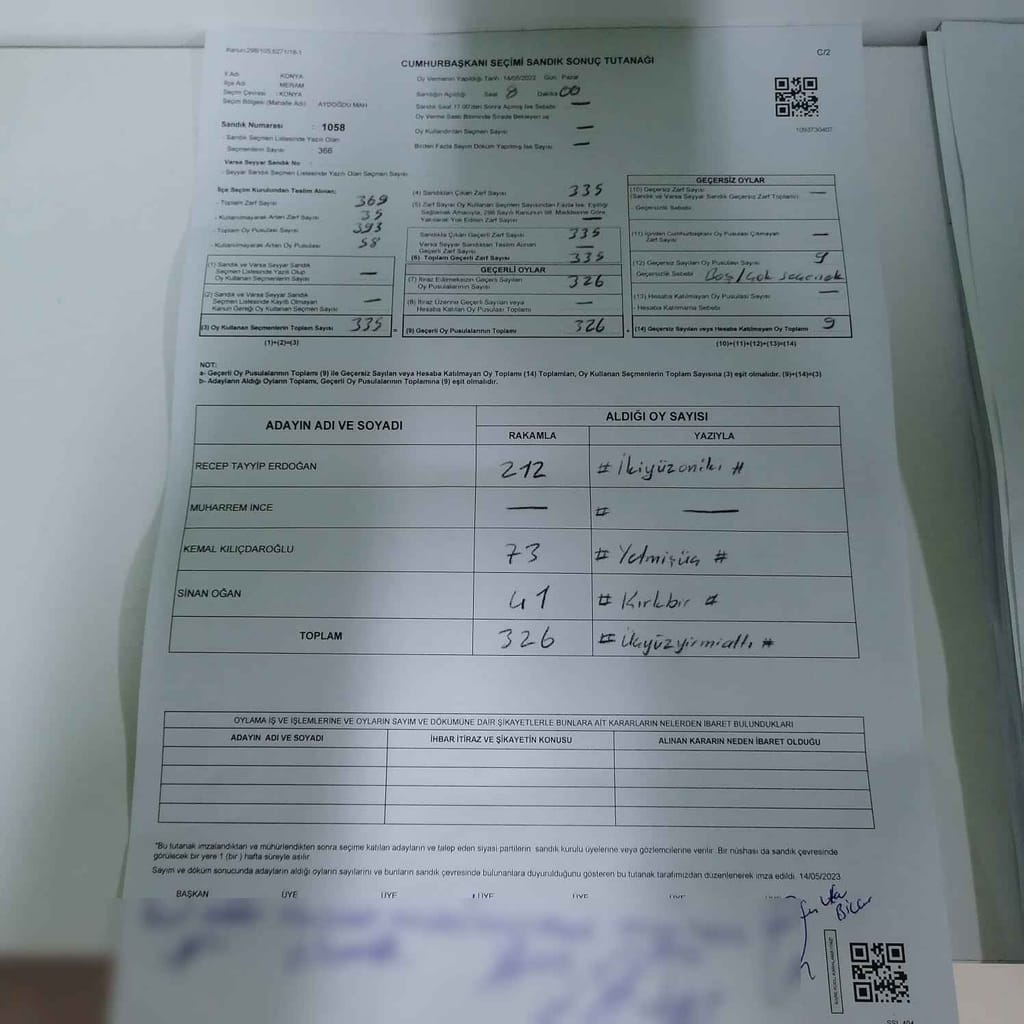 Kanun:298/105,6271/18-1
C/2
CUMHURBAŞKANI SEÇİMİ SANDIK SONUÇ TUTANAĞI
İl Adı KONYA
İlçe Adı MERAM
Seçim Çevresi : KONYA
Seçim Bölgesi (Mahalle Adı) AYDOĞDU MAH
Sandık Numarası : 1058
- Sandık Seçmen Listesinde Yazılı Olan
Seçmenlerin Sayısı 366
Varsa Seyyar Sandık No
- Seyyar Sandık Seçmen Listesinde Yazılı Olan Seçmen Sayısı
Oy Vermenin Yapıldığı Tarih 14/05/2023 Gün Pazar
Sandığın Açıldığı Saat 8 Dakika 00
Sandık Saat 17.00'den Sonra Açılmış İse Sebebi —
Oy Verme Saati Bitiminde Sırada Bekleyen ve
Oy Kullandırılan Seçmen Sayısı —
Birden Fazla Sayım Döküm Yapılmış İse Sayısı —
1093730407
İlçe Seçim Kurulundan Teslim Alınan;
- Toplam Zarf Sayısı 369
- Kullanılmayarak Artan Zarf Sayısı 35
- Toplam Oy Pusulası Sayısı 393
- Kullanılmayarak Artan Oy Pusulası 58
(1) Sandık ve Varsa Seyyar Sandık
Seçmen Listesinde Yazılı Olup
Oy Kullanan Seçmenlerin Sayısı —
(2) Sandık ve Varsa Seyyar Sandık
Seçmen Listesinde Kayıtlı Olmayan
Kanun Gereği Oy Kullanan Seçmen Sayısı —
(3) Oy Kullanan Seçmenlerin Toplam Sayısı 335 =
(1)+(2)=(3)
(4) Sandıktan Çıkan Zarf Sayısı 335
(5) Zarf Sayısı Oy Kullanan Seçmen Sayısından Fazla İse; Eşitliği
Sağlamak Amacıyla, 298 Sayılı Kanunun 98. Maddesine Göre
Yakılarak Yok Edilen Zarf Sayısı —
Sandıkta Çıkan Geçerli Zarf Sayısı 335
Varsa Seyyar Sandıktan Teslim Alınan
Geçerli Zarf Sayısı —
(6) Toplam Geçerli Zarf Sayısı 335
GEÇERLİ OYLAR
(7) İtiraz Edilmeksizin Geçerli Sayılan
Oy Pusulalarının Sayısı 326
(8) İtiraz Üzerine Geçerli Sayılan veya
Hesaba Katılan Oy Pusulası Toplamı —
(9) Geçerli Oy Pusulalarının Toplamı 326 +
GEÇERSİZ OYLAR
(10) Geçersiz Zarf Sayısı —
(Sandık ve Varsa Seyyar Sandık Geçersiz Zarf Toplamı)
- Geçersizlik Sebebi
(11) İçinden Cumhurbaşkanı Oy Pusulası Çıkmayan
Zarf Sayısı —
(12) Geçersiz Sayılan Oy Pusulası Sayısı 9
Geçersizlik Sebebi Boş/Çok seçenek
(13) Hesaba Katılmayan Oy Pusulası Sayısı —
- Hesaba Katılmama Sebebi
(14) Geçersiz Sayılan veya Hesaba Katılmayan Oy Toplamı 9
(10)+(11)+(12)+(13)=(14)
NOT:
a- Geçerli Oy Pusulalarının Toplamı (9) ile Geçersiz Sayılan veya Hesaba Katılmayan Oy Toplamı (14) Toplamları, Oy Kullanan Seçmenlerin Toplam Sayısına (3) eşit olmalıdır. (9)+(14)=(3)
b- Adayların Aldığı Oyların Toplamı, Geçerli Oy Pusulalarının Toplamına (9) eşit olmalıdır.
ADAYIN ADI VE SOYADI
ALDIĞI OY SAYISI
RAKAMLA YAZIYLA
RECEP TAYYİP ERDOĞAN 212 # İkiyüzoniki #
MUHARREM İNCE — # —
KEMAL KILIÇDAROĞLU 73 # Yetmişüç #
SİNAN OĞAN 41 # Kırkbir #
TOPLAM 326 # Üçyüzyirmialtı #
OYLAMA İŞ VE İŞLEMLERİNE VE OYLARIN SAYIM VE DÖKÜMÜNE DAİR ŞİKAYETLERLE BUNLARA AİT KARARLARIN NELERDEN İBARET BULUNDUKLARI
ADAYIN ADI VE SOYADI İHBAR İTİRAZ VE ŞİKAYETİN KONUSU ALINAN KARARIN NEDEN İBARET OLDUĞU
"Bu tutanak imzalandıktan ve mühürlendikten sonra seçime katılan adayların ve talep eden siyasi partilerin sandık kurulu üyelerine veya gözlemcilerine verilir. Bir nüshası da sandık çevresinde
görülecek bir yere 1 (bir) hafta süreyle asılır.
Sayım ve döküm sonucunda adayların aldığı oyların sayılarını ve bunların sandık çevresinde bulunanlara duyurulduğunu gösteren bu tutanak tarafımızdan düzenlenerek imza edildi. 14/05/2023
BAŞKAN ÜYE ÜYE ÜYE ÜYE ÜYE